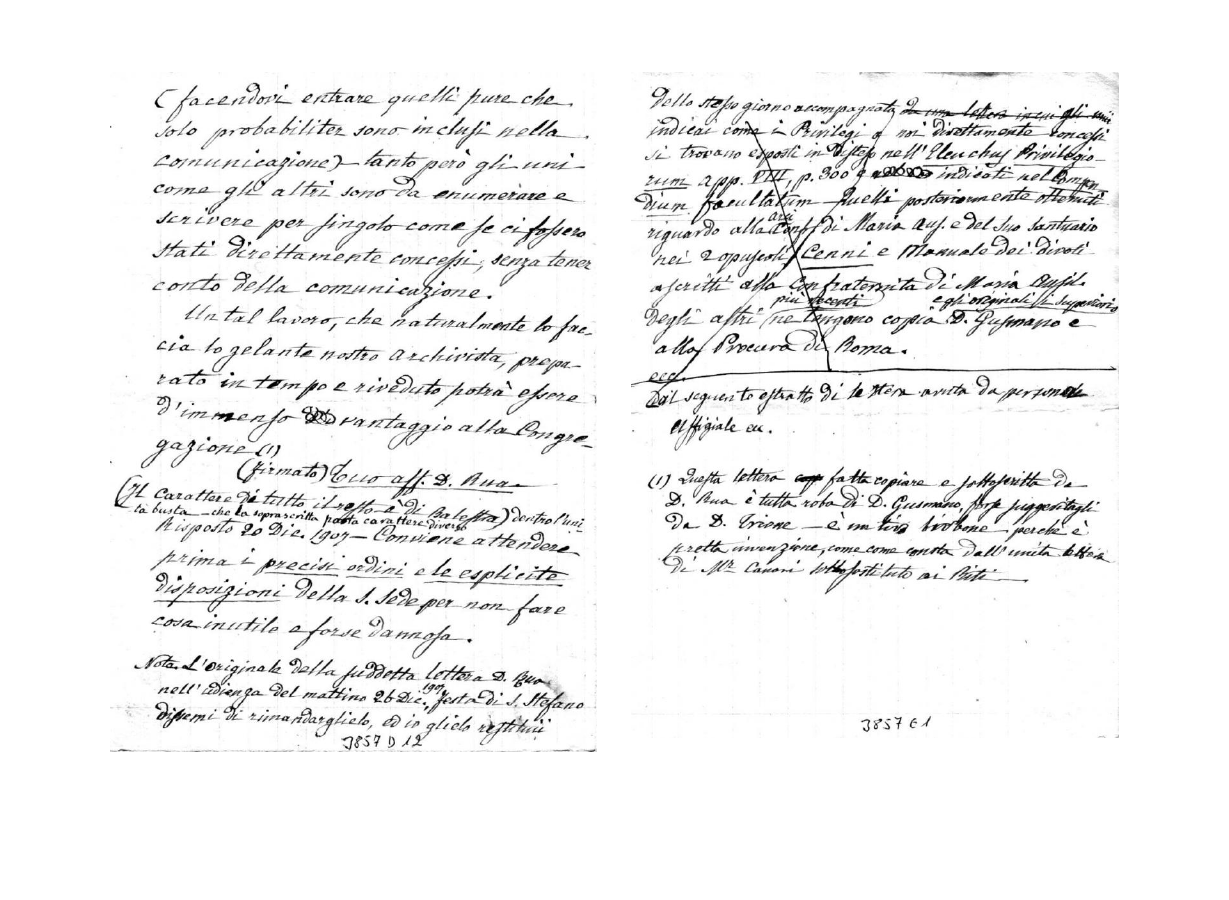 (facendovi entrare quelli pure che
solo probabiliter sono inclusi nella
comunicazione) tanto però gli uni
come gli altri sono da enumerare e
scrivere per singolo come se ci fossero
stati direttamente concessi, senza tener
conto della comunicazione.
Un tal lavoro, che naturalmente lo fac-
cia lo zelante nostro archivista, prepa-
rato in tempo e riveduto potrà essere
d'immenso vantaggio alla Congre-
gazione (1)
(firmato) Tuo aff. D. Rua
(Il Carattere di tutto il resto è di Balestra) dentro l'uni-
ta busta - che la soprascritta porta carattere diverso
Risposto 20 Dic. 1907 - Conviene attendere
prima i precisi ordini e le esplicite
disposizioni della S. Sede per non fare
cosa inutile e forse dannosa.
Nota. L'originale della suddetta lettera D. Rua
nell'udienza del mattino 26 Dic. 1907, festa di S. Stefano
dissemi di rimandarglielo, ed io glielo restituii
3857 D 12
dello stesso giorno accompagnata da una lettera in cui gli
indicai come i Privilegi a noi direttamente concessi
si trovano esposti in disteso nell'Elenchus Privilegio-
rum app. VIII, p. 300 e indicati nel Compen-
dium facultatum Quelli posteriormente ottenuti
riguardo alla arci Conf. di Maria Aus. e del suo Santuario
nei 2 opuscoli Cenni e Manuale dei divoti
ascritti alla Confraternita di Maria Ausil.
più recenti e gli originali i superiori
degli altri ne tengono copia D. Gusmano e
alla Procura di Roma.
ecc.
Dal seguente estratto di lettera avuta da persona
Uffiziale eu.
(1) Questa lettera fatta copiare e sottoscritta da
D. Rua è tutta roba di D. Gusmano, forse suggeritagli
da D. Trione - è un tiro birbone perchè è
pretta invenzione, come come consta dall'unita lettera
di Mr. Canori sottosostituto ai Riti
3857 E 1